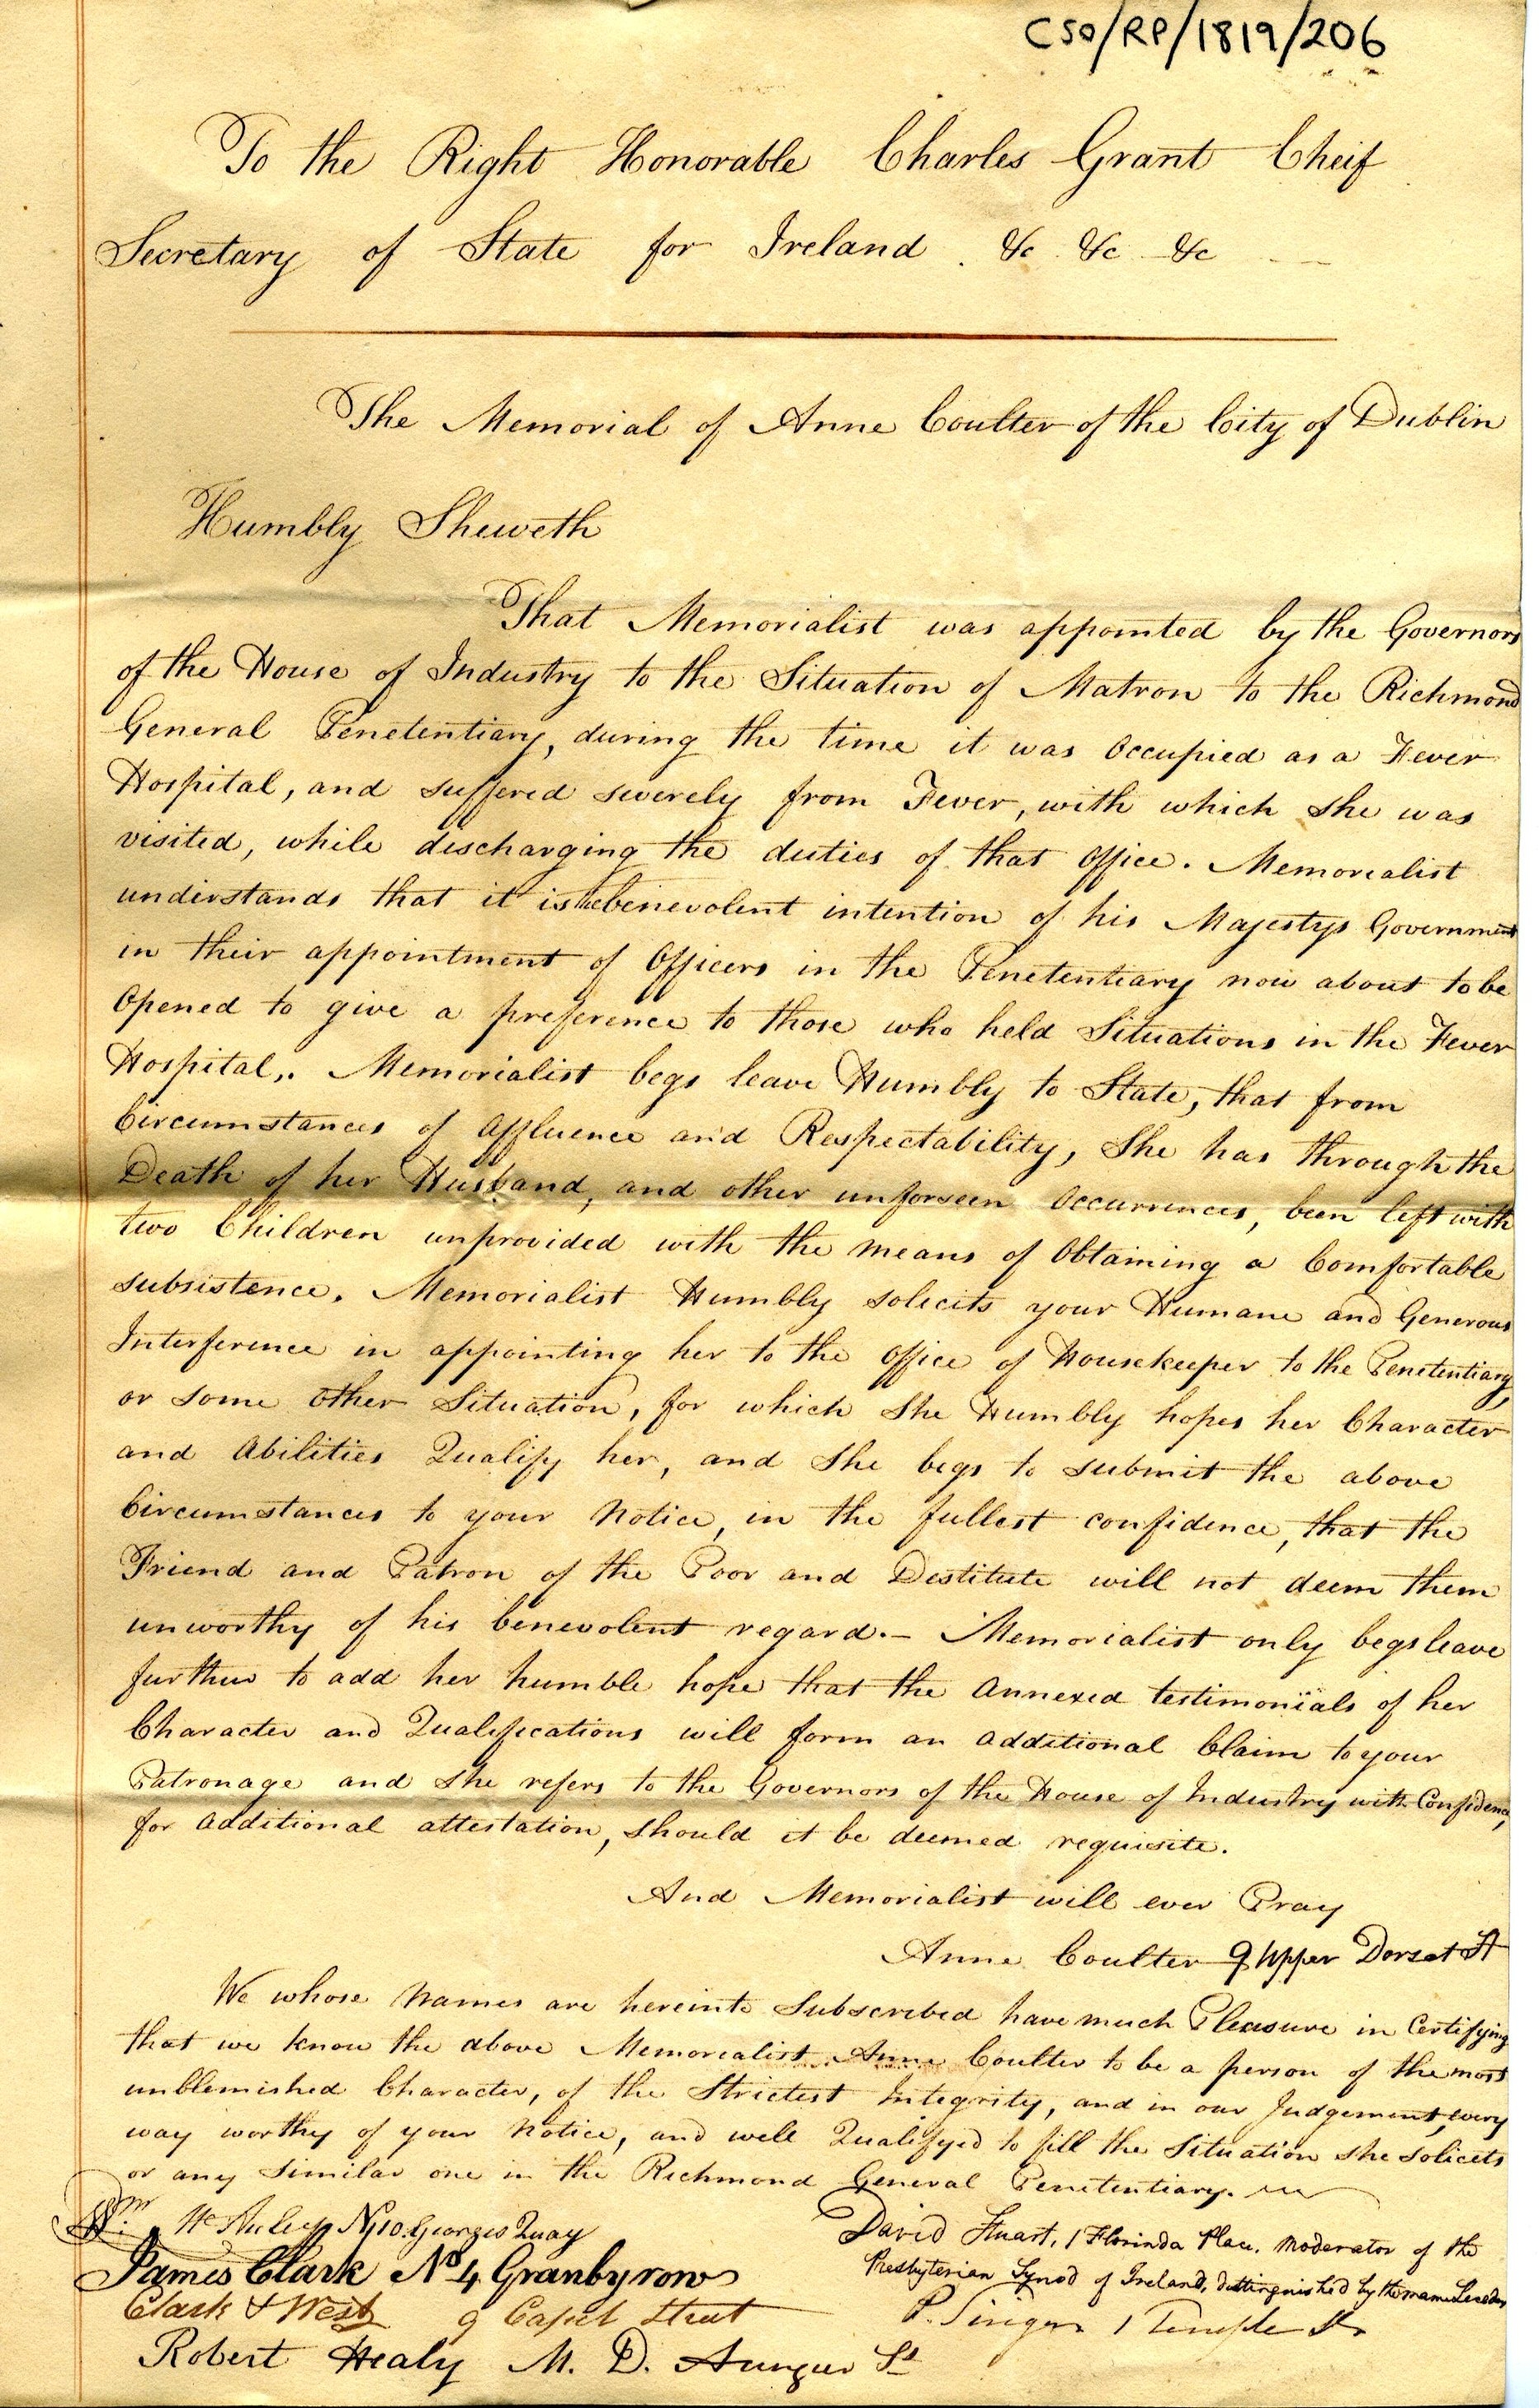 CSO/RP/1819/206
To the Right Honorable Charles Grant Cheif
Secretary of State for Ireland . &c &c &c
The Memorial of Anne Coulter of the City of Dublin
Humbly Sheweth
That Memorialist was appointed by the Governors
of the House of Industry to the Situation of Matron to the Richmond
General Penetentiary, during the time it was Occupied as a Fever
Hospital, and suffered severely from Fever, with which she was
visited, while discharging the duties of that Office. Memorialist
understands that it is the benevolent intention of his Majestys Government
in their appointment of Officers in the Penetentiary now about to be
Opened to give a preference to those who held Situations in the Fever
Hospital,. Memorialist begs leave Humbly to State, that from
Circumstances of Affluence and Respectability, She has through the
Death of her Husband, and other unforseen Occurrences, been left with
two Children unprovided with the means of Obtaining a Comfortable
subsistence. Memorialist Humbly solicits your Humane and Generous
Interference in appointing her to the Office of Housekeeper to the Penetentiary,
or some other Situation, for which She Humbly hopes her Character
and Abilities Qualify her, and She begs to submit the above
Circumstances to your Notice, in the fullest confidence, that the
Friend and Patron of the Poor and Destitute will not deem them
unworthy of his benevolent regard.– Memorialist only begs leave
further to add her humble hope that the Annexed testimonials of her
Character and Qualifications will form an Additional Claim to your
Patronage and she refers to the Governors of the House of Industry with Confidence,
for Additional attestation, should it be deemed requisite.
And Memorialist will ever Pray
Anne Coulter 9 Upper Dorset St
We whose Names are hereinto Subscribed have much Pleasure in Certifying
that we know the above Memorialist Anne Coulter to be a person of the most
unblemished Character, of the Strictest Integrity, and in our Judgement, every
way worthy of your Notice, and well Qualifyed to fill the Situation she solicits
or any similar one in the Richmond General Penetentiary.
Wm No 10 Georges Quay
James Clark No 4 Granby row
Clark & West 9 Capel Street
Robert Healy M. D. Aungier St
David Stuart, 1 Florinda Place. Moderator of the
Presbyterian Synod of Ireland, distinguished by the name Seceders
P. Singer 1 Temple St